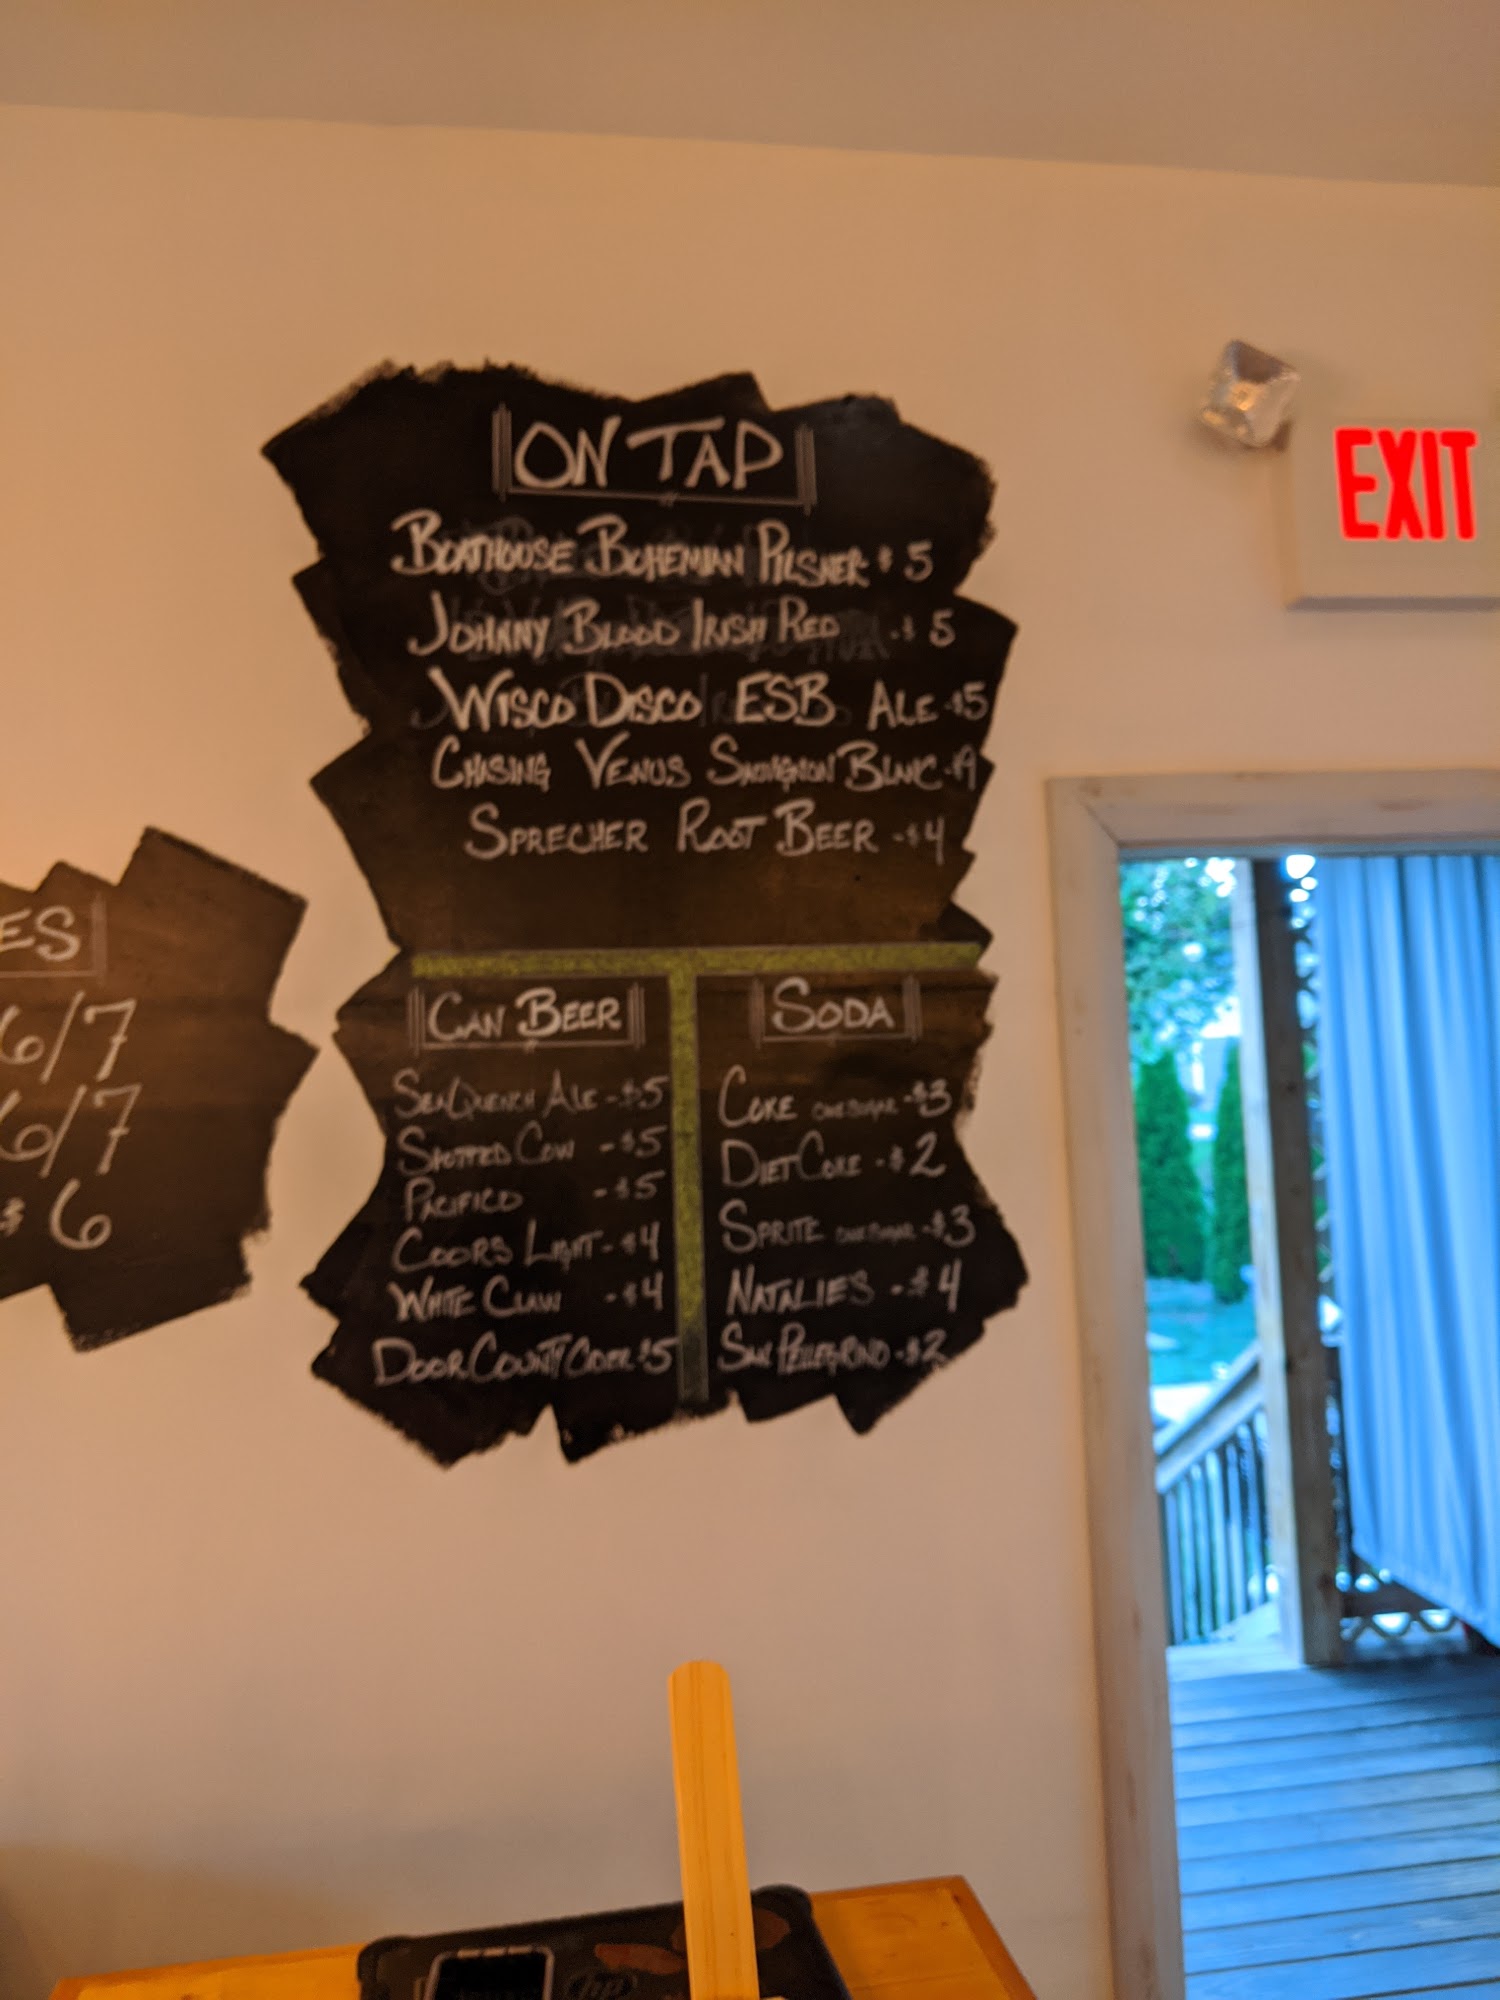 ON TAP
BOATHOUSE BOHEMIAN PILSNER $5
JOHNNY BLOOD IRISH RED -$5
WISCO DISCO ESB ALE -$5
CHASING VENUS SAUVIGNON BLANC -$9
SPRECHER ROOT BEER -$4
CAN BEER
SEAQUENCH ALE -$5
SPOTTED COW -$5
PACIFICO -$5
COORS LIGHT -$4
WHITE CLAW -$4
DOOR COUNTY CIDER $5
SODA
COKE CANE SUGAR -$3
DIET COKE -$2
SPRITE CANE SUGAR -$3
NATALIES -$4
SAN PELLEGRINO -$2
ES
6/7
6/7
$6
EXIT
hp